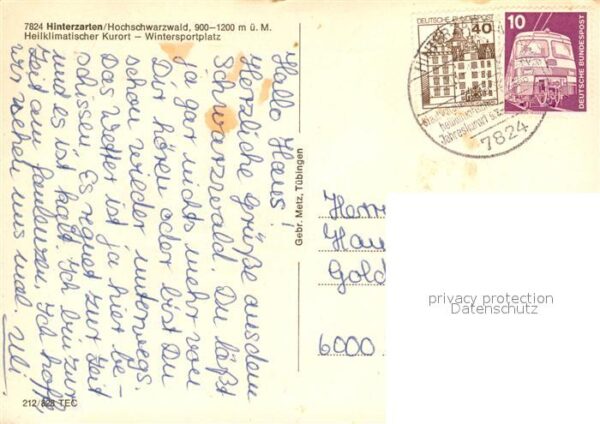 7824 Hinterzarten/Hochschwarzwald, 900-1200 m ü. M.
Heilklimatischer Kurort — Wintersportplatz
Hallo Hans!
Herzliche Grüße aus dem
Schwarzwald. Du läßt
ja gar nichts mehr von
Dir hören oder bist Du
schon wieder unterwegs.
Das Wetter ist ja hier be-
schissen. Es regnet zur Zeit
und es ist kalt. Ich bin zur
Zeit am faulenzen. Ich hoffe
wir sehen uns mal. Uli
212/328 TEC
Gebr. Metz, Tübingen
DEUTSCHE BUNDESPOST
40
10
DEUTSCHE BUNDESPOST
Jahreskurort
7824
Herrn
Han
Gold
6000
privacy protection
Datenschutz